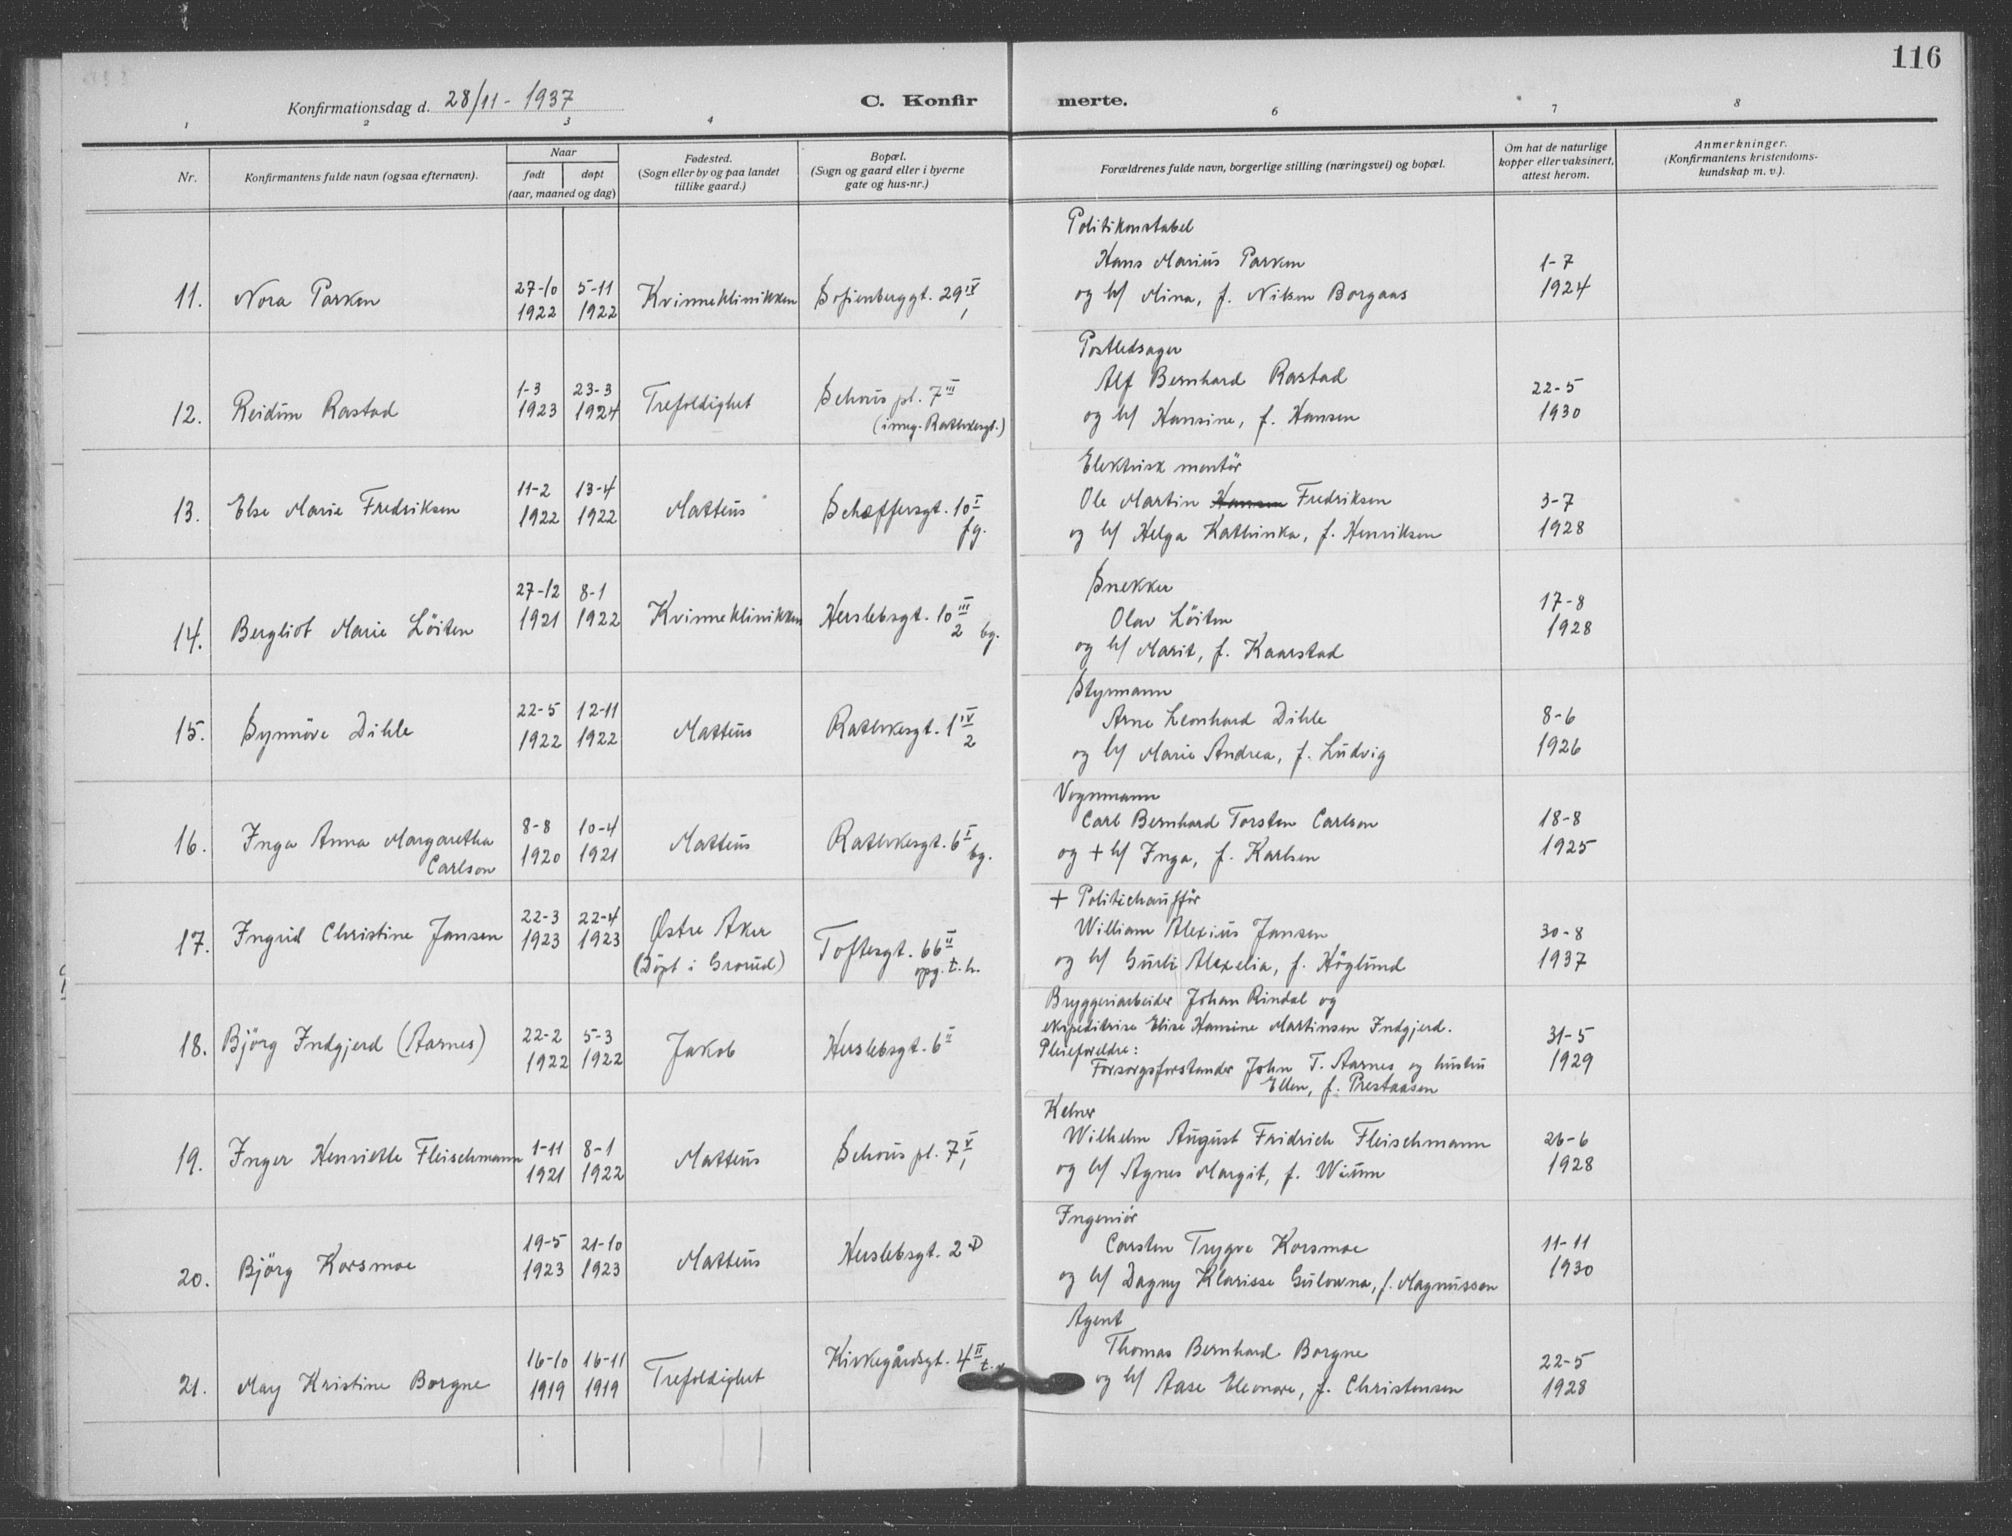 116
Konfirmationsdag d. 28/11 - 1937
C. Konfir merte.
1 2 3 4 6 7 8
Nr.
Konfirmantens fulde navn (ogsaa efternavn).
Naar
født døpt
(aar, maaned og dag)
Fødested.
(Sogn eller by og paa landet
tillike gaard.)
Bopæl.
(Sogn og gaard eller i byerne
gate og hus-nr.)
Forældrenes fulde navn, borgerlige stilling (næringsvei) og bopæl.
Om hat de naturlige
kopper eller vaksinert,
attest herom.
Anmerkninger.
(Konfirmantens kristendoms-
kundskap m. v.).
11. Nora Parken
27-10 1922
5-11 1922
Kvinneklinikken
Sofienberggt. 29 IV/1
Politikonstabel
Hans Marius Parken
og h/ Mina, f. Nilsen Borgaas
1-7
1924
12. Reidun Rastad
1-3 1923
23-3 1924
Trefoldighet
Schous pl. 7 III
(inng. Rathkesgt.)
Postledsager
Alf Bernhard Rastad
og h/ Hansine, f. Hansen
22-5
1930
13. Else Marie Fredriksen
11-2 1922
13-4 1922
Matteus
Schæffersgt. 10 I
fg.
Elektrisk montör
Ole Martin Hansen Fredriksen
og h/ Helga Kathinka, f. Henriksen
3-7
1928
14. Bergliot Marie Löiten
27-12 1921
8-1 1922
Kvinneklinikken
Herslebsgt. 10 III/2 bg.
Snekker
Olav Löiten
og h/ Marit, f. Kaarstad
17-8
1928
15. Synnöve Dihle
22-5 1922
12-11 1922
Matteus
Rathkesgt. 1 IV/2
Styrmann
Arne Leonhard Dihle
og h/ Marie Andrea, f. Ludvig
8-6
1926
16. Inga Anna Margaretha
Carlson
8-8 1920
10-4 1921
Matteus
Rathkesgt. 6 I bg.
Vognmann
Carl Bernhard Torsten Carlson
og + h/ Inga, f. Karlsen
18-8
1925
17. Ingrid Christine Jansen
22-3 1923
22-4 1923
Østre Aker
(Döpt i Grorud)
Toftesgt. 66 II
opg. t. h.
+ Politichaufför
William Alexius Jansen
og h/ Gurli Alexelia, f. Höglund
30-8
1937
18. Björg Indgjerd (Aarnes)
22-2 1922
5-3 1922
Jakob
Herslebsgt. 6 II
Bryggeriarbeider Johan Rindal og
ekspeditrise Elise Hansine Martinsen Indgjerd.
Pleieforeldre:
Forsorgsforstander John T. Aarnes og hustru
Ellen, f. Prestaasen
31-5
1929
19. Inger Henriette Fleischmann
1-11 1921
8-1 1922
Matteus
Schous pl. 7 V/1
Kelner
Wilhelm August Fridrich Fleischmann
og h/ Agnes Margit, f. Wiium
26-6
1928
20. Björg Korsmoe
19-5 1923
21-10 1923
Matteus
Herslebsgt. 2 D
Ingeniör
Carsten Trygve Korsmoe
og h/ Dagny Klarisse Gulowna, f. Magnusson
11-11
1930
21. May Kristine Borgne
16-10 1919
16-11 1919
Trefoldighet
Kirkegårdsgt. 4 II
Agent
Thomas Bernhard Borgne
og h/ Aase Eleonore, f. Christensen
22-5
1928